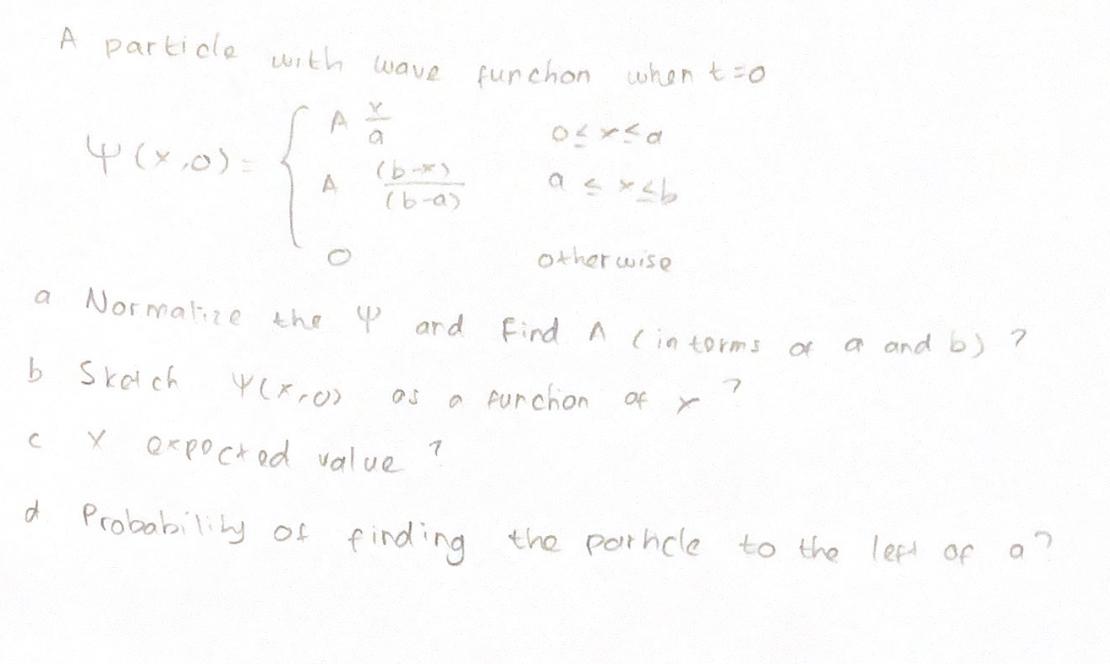 A particle with wave function when t=0
Ψ(x,0) = { A x/a 0≤x≤a
A (b-x)/(b-a) a≤x≤b
0 otherwise
a Normalize the Ψ and find A (in terms of a and b) ?
b Sketch Ψ(x,0) as a function of x ?
c X expected value ?
d Probability of finding the particle to the left of a?